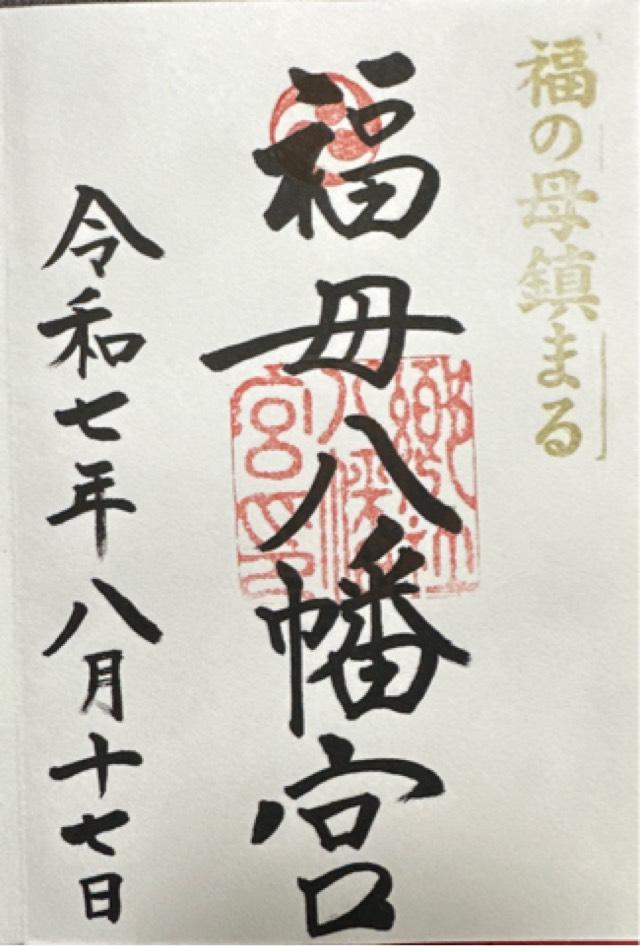 福の母鎮まる
福母八幡宮
郷社
八幡
宮印
令和七年八月十七日